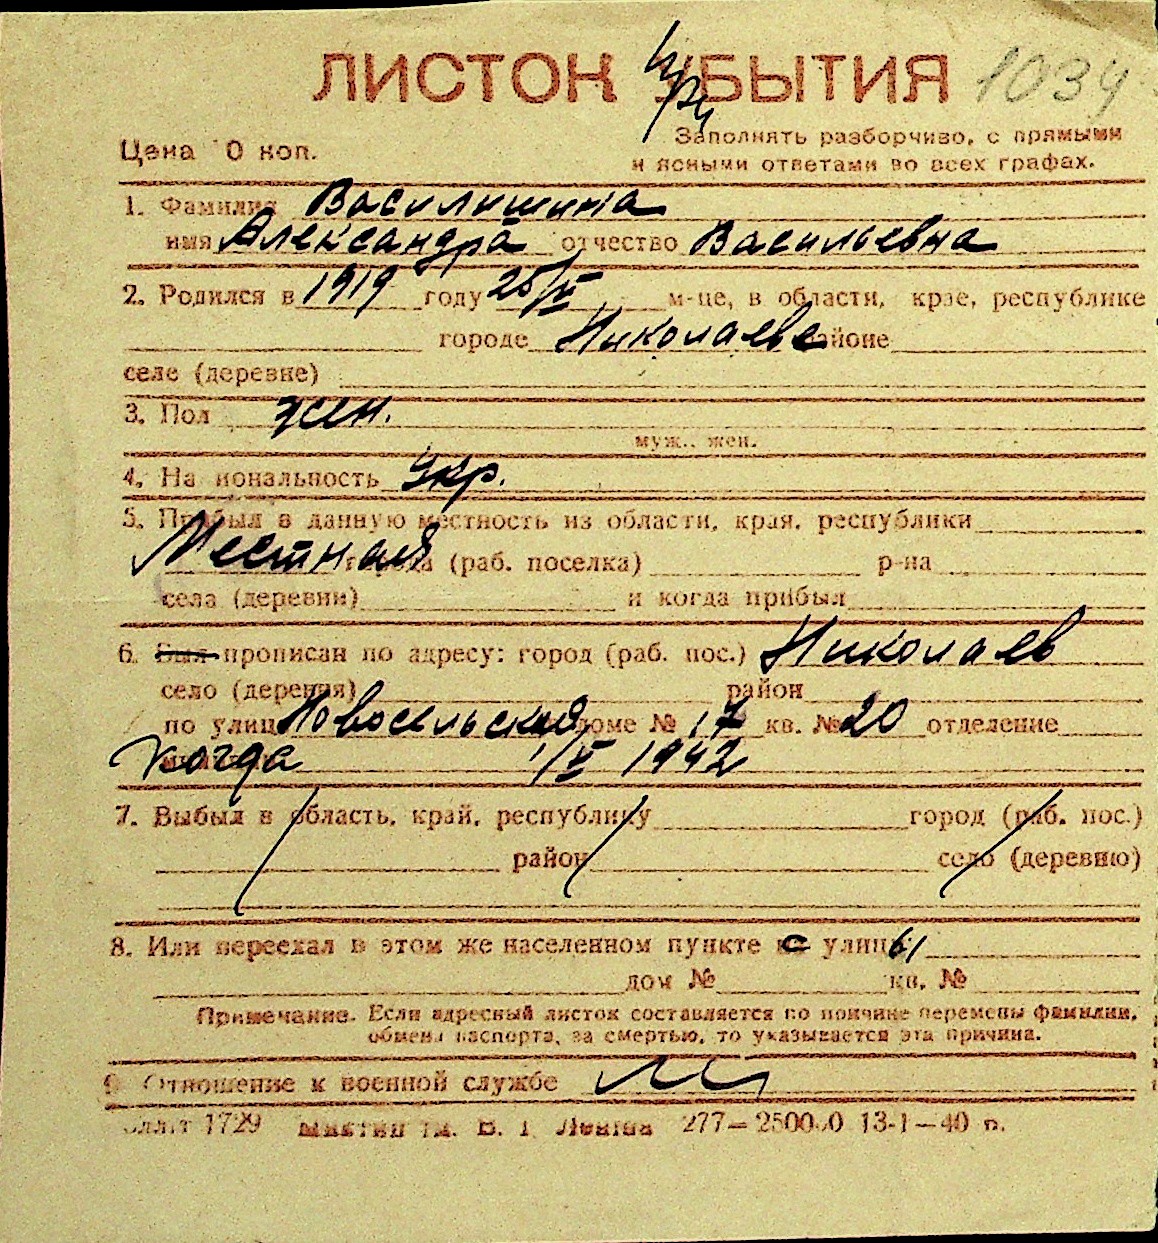 ЛИСТОК УБЫТИЯ 1034
При
Цена 10 коп.
Заполнять разборчиво, с прямыми
и ясными ответами во всех графах.
1. Фамилия Василишина
имя Александра отчество Васильевна
2. Родился в 1919 году 25/IV м-це, в области, крае, республике
городе Николаеве районе
селе (деревне)
3. Пол жен.
муж., жен.
4. Национальность Укр.
5. Прибыл в данную местность из области, края, республики
Местная города (раб. поселка) р-на
села (деревни) и когда прибыл
6. Был прописан по адресу: город (раб. пос.) Николаев
село (деревня) район
по улице Новосельская доме № 17 кв. № 20 отделение
когда 1/V 1942
7. Выбыл в область, край, республику город (раб. пос.)
район село (деревню)
8. Или переехал в этом же населенном пункте с улицы
дом № кв. №
Примечание. Если адресный листок составляется по причине перемены фамилии,
обмена паспорта, за смертью, то указывается эта причина.
9. Отношение к военной службе
1729 им. В. И. Ленина 277—250000 13-1—40 п.